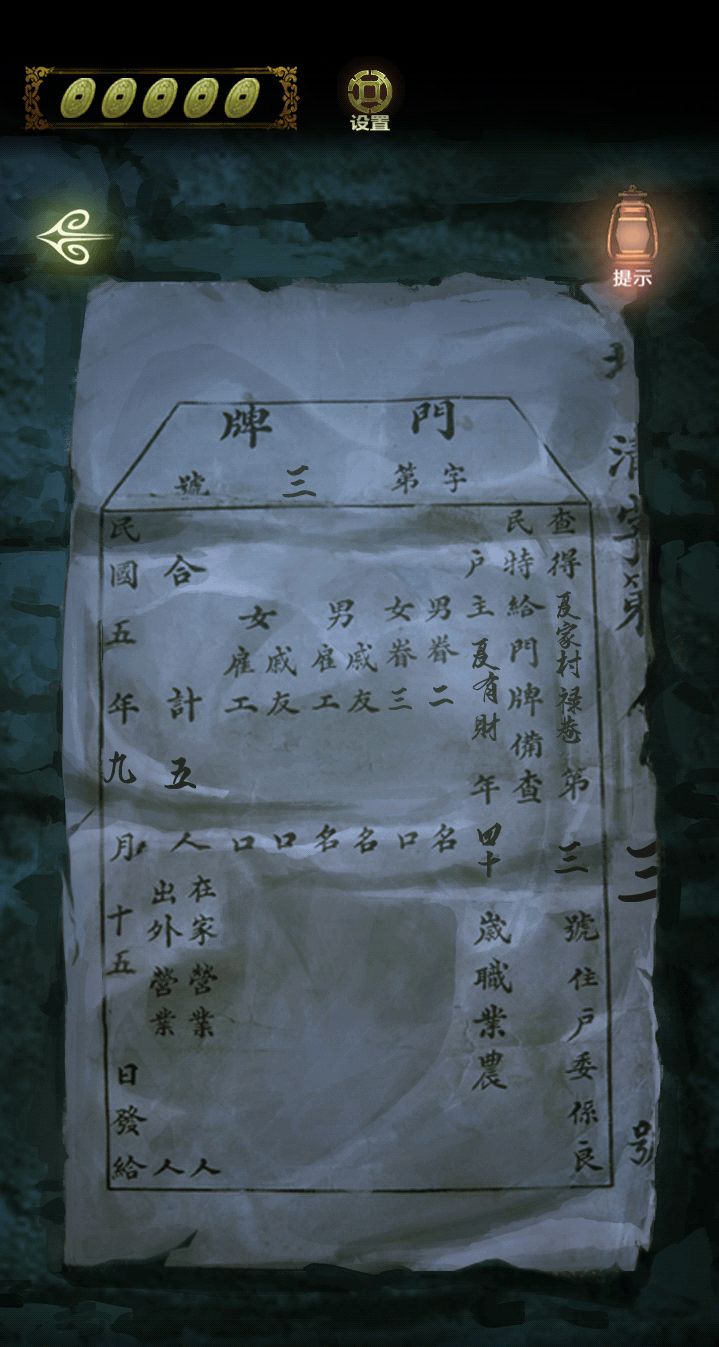 设置
提示
門牌
字第三號
查得夏家村禄巷第三號住戶委係良
民特給門牌備查
戶主夏有財年四十歲職業農
男眷二名
女眷三口
男戚友名
雇工名
女戚友口
雇工口
合計五人
在家營業人
出外營業人
民國五年九月十五日發給
清字第
三號